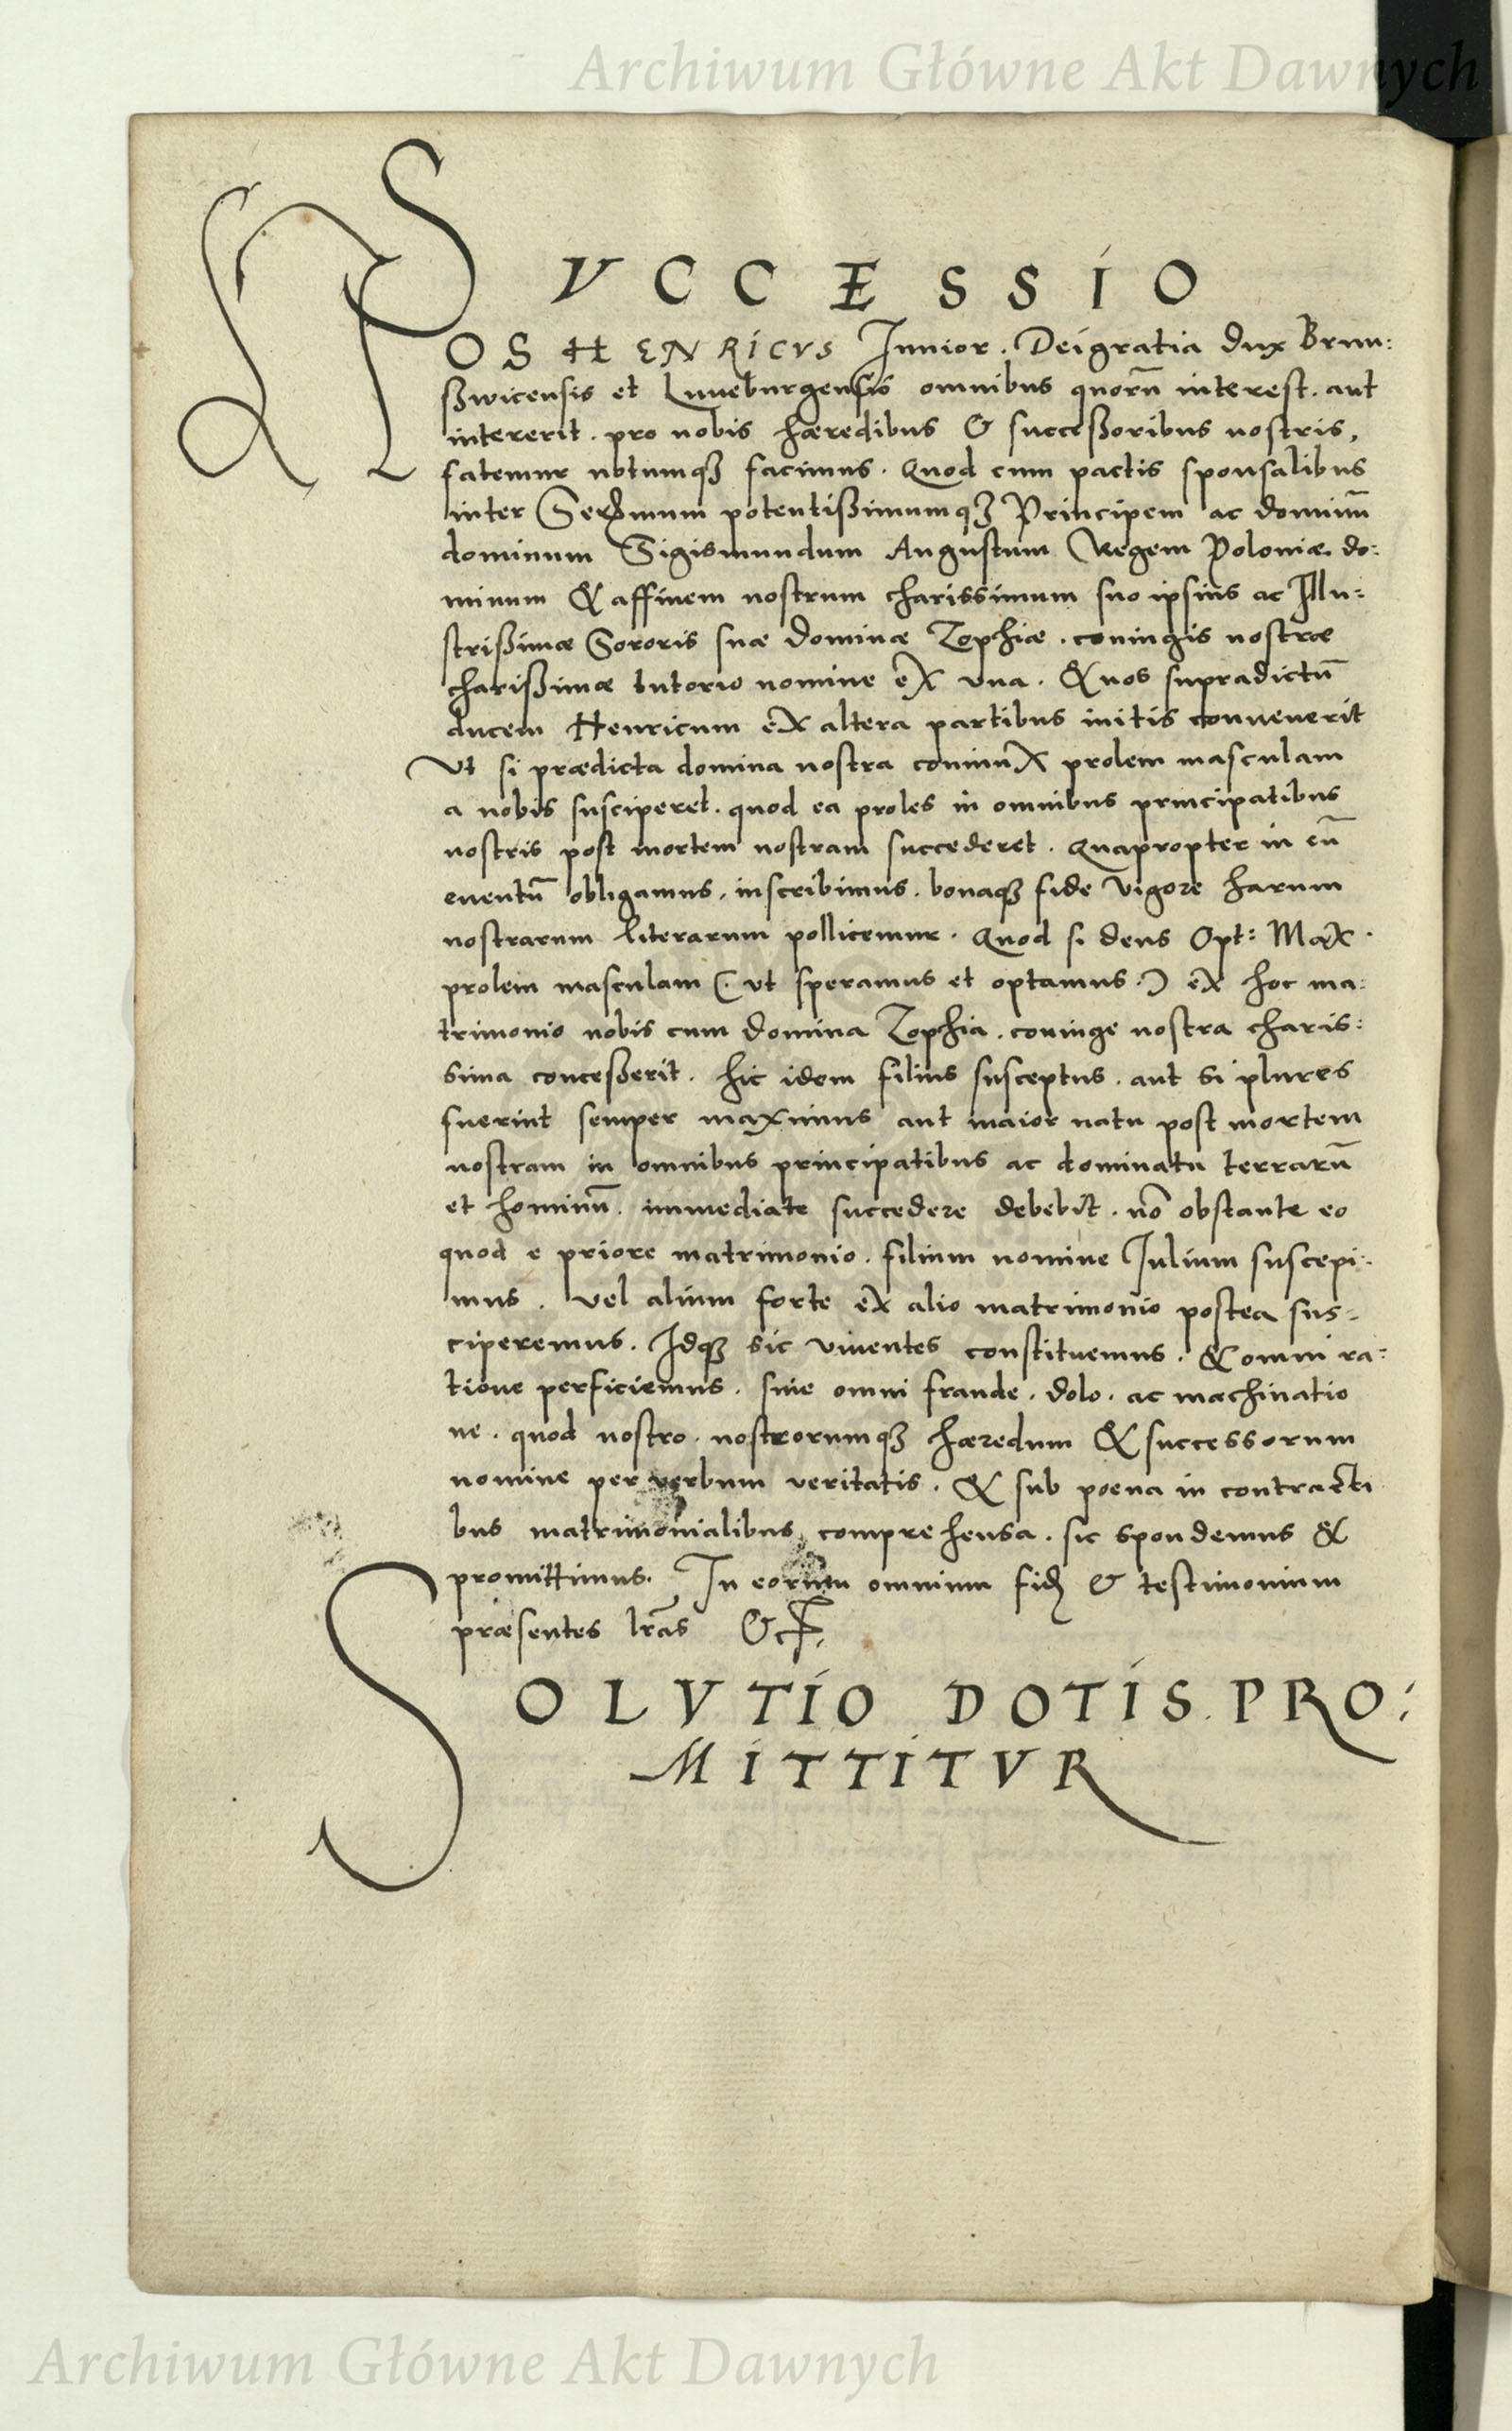 Archiwum Główne Akt Dawnych
SVCCESSIO
NOS HENRICVS Junior. Dei gratia dux Brun:
ßwicensis et Luneburgensis omnibus quorū interest. aut
intererit. pro nobis hæredibus & succeßoribus nostris,
fatemur notumqȝ facimus. Quod cum pactis sponsalibus
inter Serᵐᵘᵐ potentißimumqȝ Principem ac dominū
dominum Sigismundum Augustum Regem Poloniæ. do:
minum & affinem nostrum charissimum suo ipsius ac Illu:
strißimæ Sororis suæ dominæ Zophiæ. coniugis nostræ
charißimæ tutorio nomine ex vna. & nos supradictū
ducem Henricum ex altera partibus initis convenerit
Vt si prædicta domina nostra coniunx prolem masculam
a nobis susciperet. quod ea proles in omnibus principatibus
nostris post mortem nostram succederet. Quapropter in eū
euentū obligamus. inscribimus. bonaqȝ fide vigore harum
nostrarum literarum pollicemur. Quod si deus Opt: Max.
prolem masculam (. vt speramus et optamus.) ex hoc ma:
trimonio nobis cum domina Zophia. coniuge nostra charis:
sima conceßerit. hic idem filius susceptus. aut si plures
fuerint semper maximus aut maior natu post mortem
nostram in omnibus principatibus ac dominatu terrarū
et hominū. immediate succedere debebit. nō obstante eo
quod e priore matrimonio. filium nomine Julium suscepi:
mus. vel alium forte ex alio matrimonio postea sus-
ciperemus. Idqȝ sic viuentes constituemus. & omni ra:
tione perficiemus. sine omni fraude. dolo. ac machinatio
ne. quod nostro. nostrorumqȝ hæredum & successorum
nomine per verbum veritatis. & sub poena in contracti
bus matrimonialibus comprehensa. sic spondemus &
promittimus. In eorum omnium fidȝ & testimonium
præsentes lrās &c
SOLVTIO DOTIS PRO:
MITTITVR
Archiwum Główne Akt Dawnych